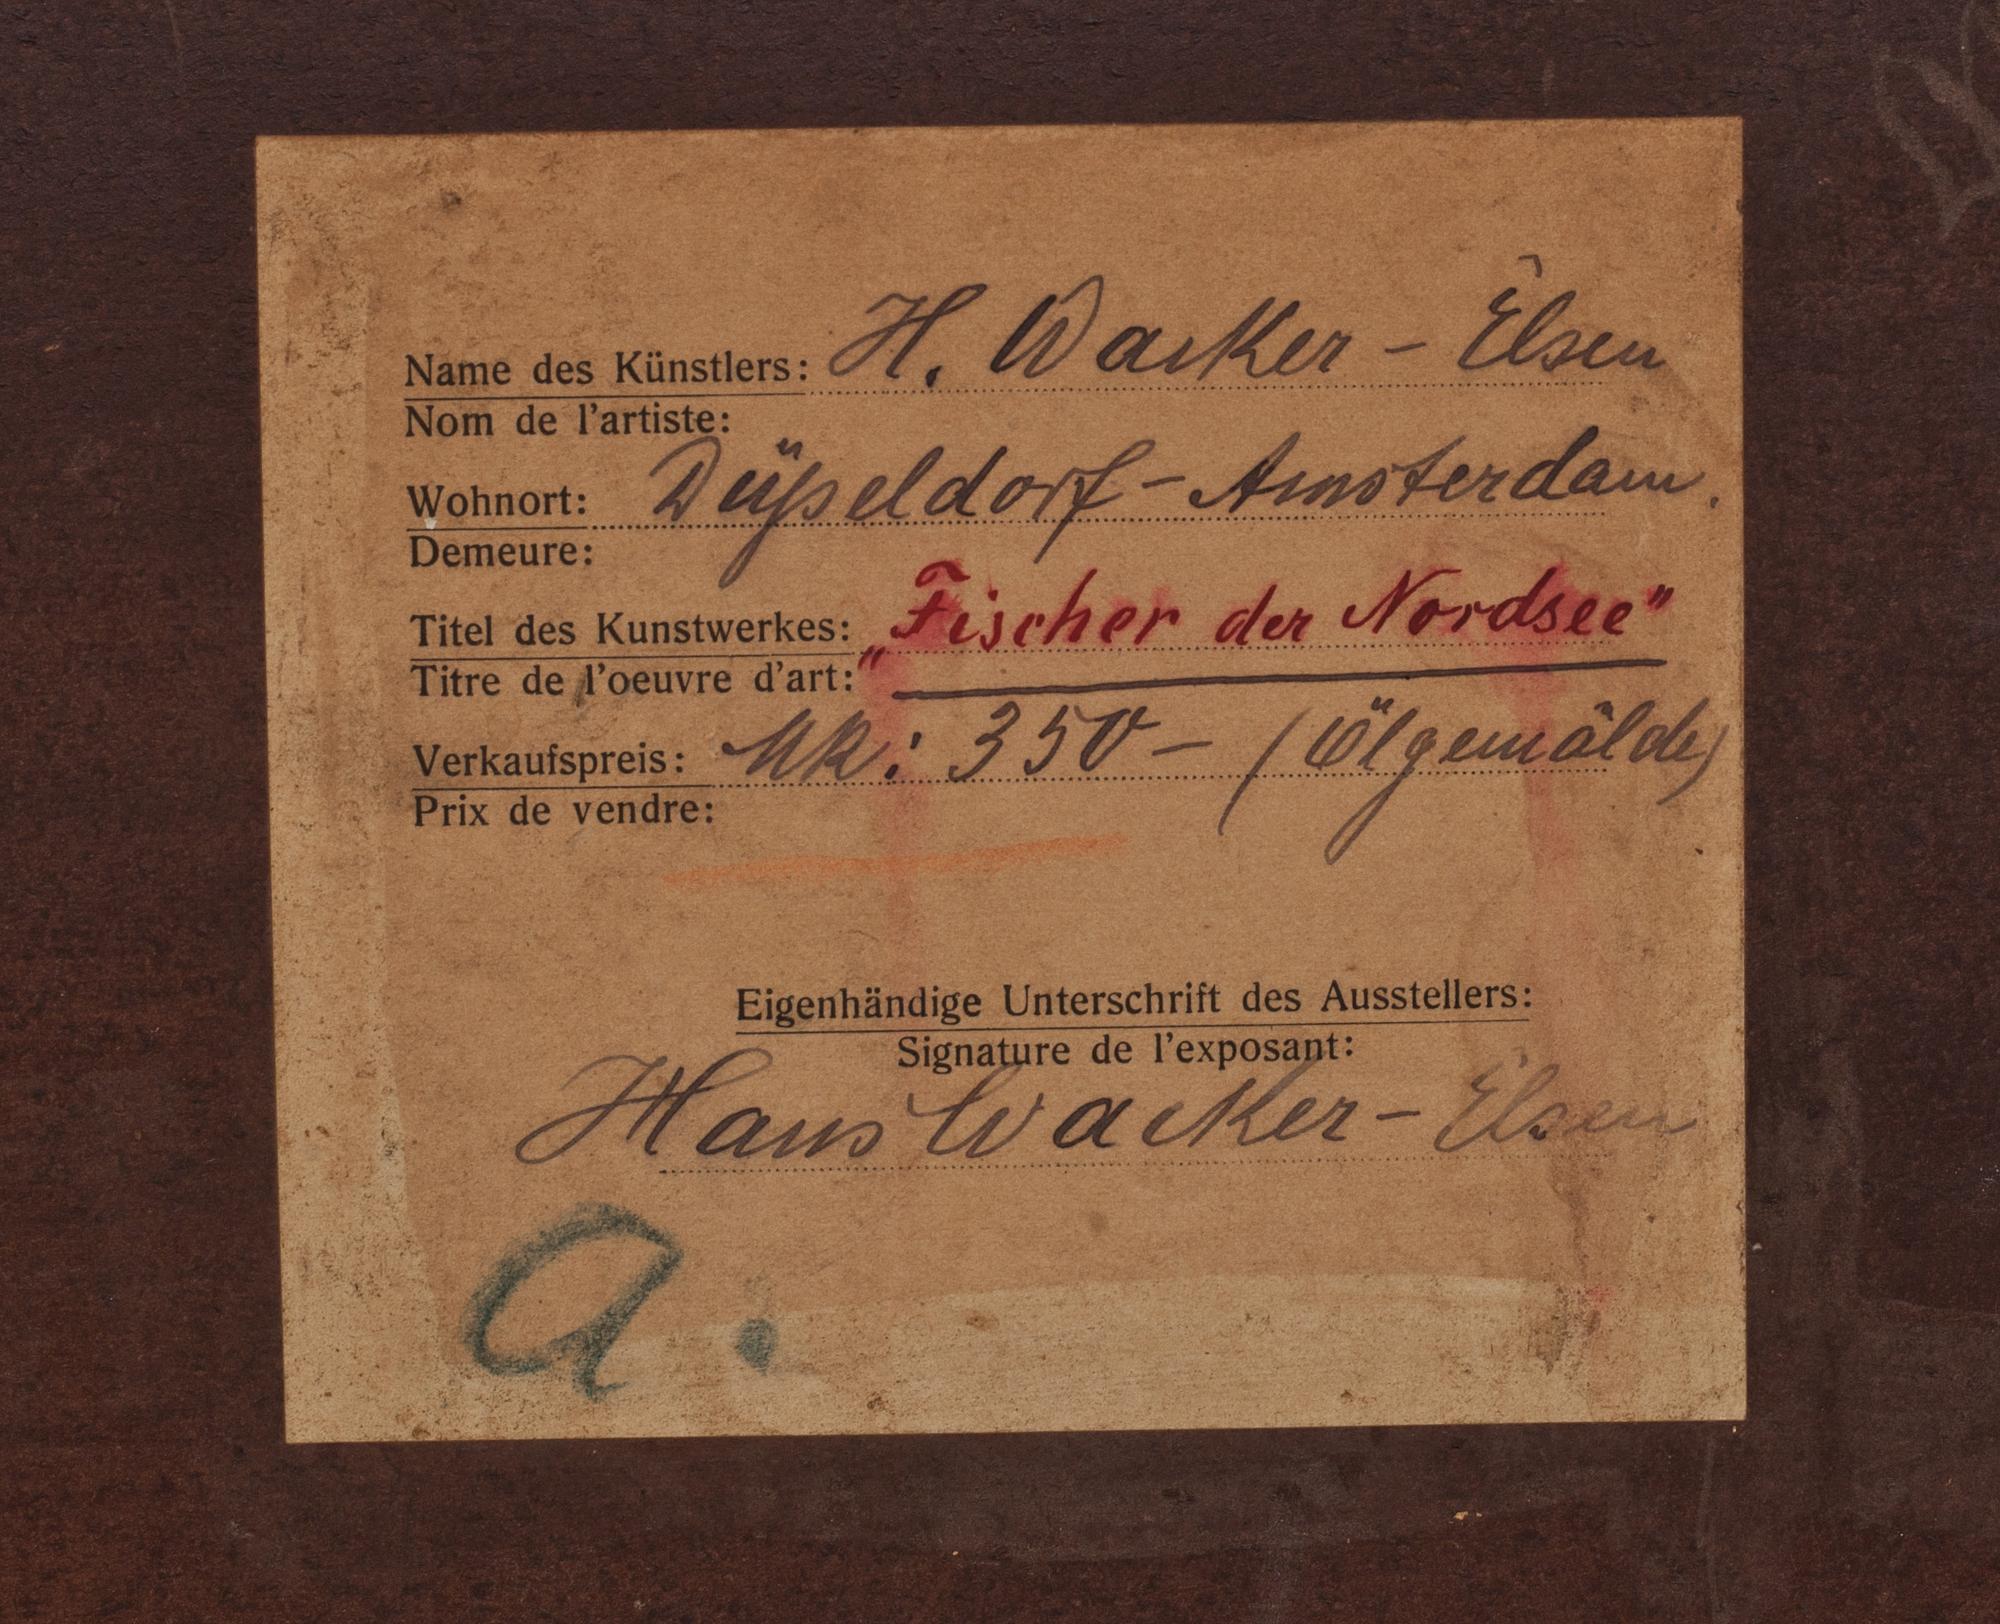 Name des Künstlers: H. Wacker - Elsen
Nom de l'artiste:
Wohnort: Düßseldorf - Amsterdam.
Demeure:
Titel des Kunstwerkes: „Fischer der Nordsee"
Titre de l'oeuvre d'art:
Verkaufspreis: Mk: 350 - (Ölgemälde)
Prix de vendre:
Eigenhändige Unterschrift des Ausstellers:
Signature de l'exposant:
Hans Wacker - Elsen
a.